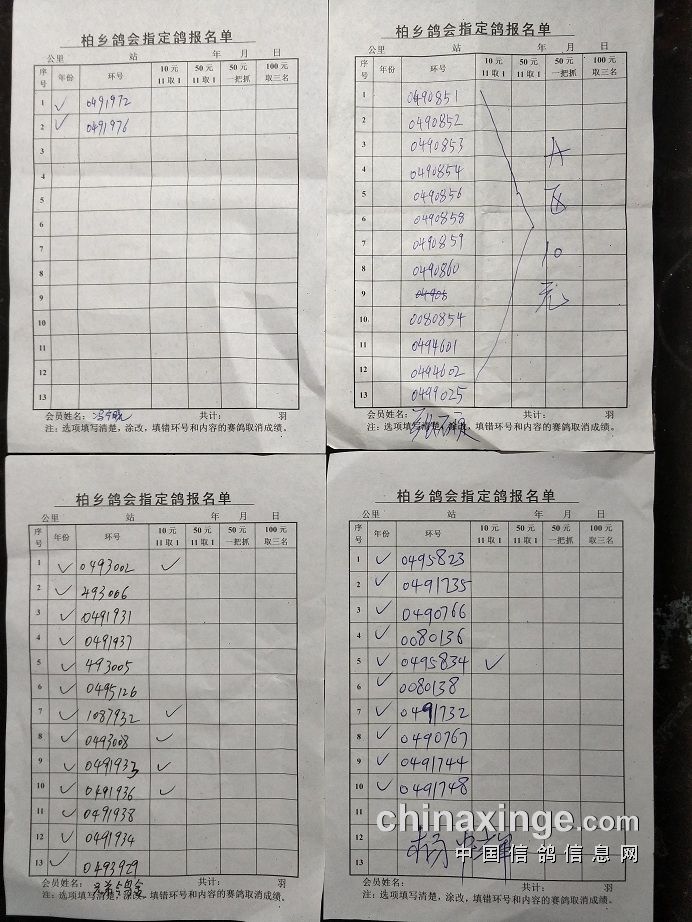 柏乡鸽会指定鸽报名单
公里 站 年 月 日
序号 年份 环号 10元 11取1 50元 11取1 50元 一把抓 100元 取三名
1 ✓ 0491972
2 ✓ 0491976
3
4
5
6
7
8
9
10
11
12
13
会员姓名： 共计： 羽
注：选项填写清楚，涂改，填错环号和内容的赛鸽取消成绩。
柏乡鸽会指定鸽报名单
公里 站 年 月 日
序号 年份 环号 10元 11取1 50元 11取1 50元 一把抓 100元 取三名
1 0490851
2 0490852
3 0490853
4 0490854
5 0490856
6 0490858
7 0490859
8 0490860
9 04908
10 0080854
11 0494601
12 0494602
13 0499025
A
10
元
会员姓名： 共计： 羽
注：选项填写清楚，涂改，填错环号和内容的赛鸽取消成绩。
柏乡鸽会指定鸽报名单
公里 站 年 月 日
序号 年份 环号 10元 11取1 50元 11取1 50元 一把抓 100元 取三名
1 ✓ 0493002 ✓
2 ✓ 493006
3 ✓ 0491931
4 ✓ 0491937
5 ✓ 493005
6 ✓ 0495126
7 ✓ 1087932 ✓
8 ✓ 0493008 ✓
9 ✓ 0491933 ✓
10 ✓ 0491936 ✓
11 ✓ 0491938
12 ✓ 0491934
13 ✓ 0493929
会员姓名： 共计： 羽
注：选项填写清楚，涂改，填错环号和内容的赛鸽取消成绩。
柏乡鸽会指定鸽报名单
公里 站 年 月 日
序号 年份 环号 10元 11取1 50元 11取1 50元 一把抓 100元 取三名
1 ✓ 0495823
2 ✓ 0491735
3 ✓ 0490766
4 ✓ 0080136
5 ✓ 0495834 ✓
6 ✓ 0080138
7 ✓ 0491732
8 ✓ 0490767
9 ✓ 0491744
10 ✓ 0491748
11
12
13
会员姓名： 共计： 羽
注：选项填写清楚，涂改，填错环号和内容的赛鸽取消成绩。
chinaxinge.com
中国信鸽信息网